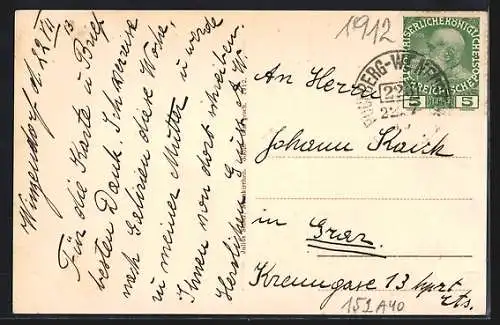 Winzendorf d. 22/VII 13
Für die Karte u Brief
besten Dank. Ich verreise
nach Galizien diese Woche,
zu meiner Mutter u werde
Ihnen von dort schreiben.
Herzlichen Gruß A W.
1912
KAISERLICHE KÖNIGLICHE
ÖSTERREICHISCHE POST
5 5
22
An Herrn
Johann
in Graz.
Krenngasse 13
151 A40